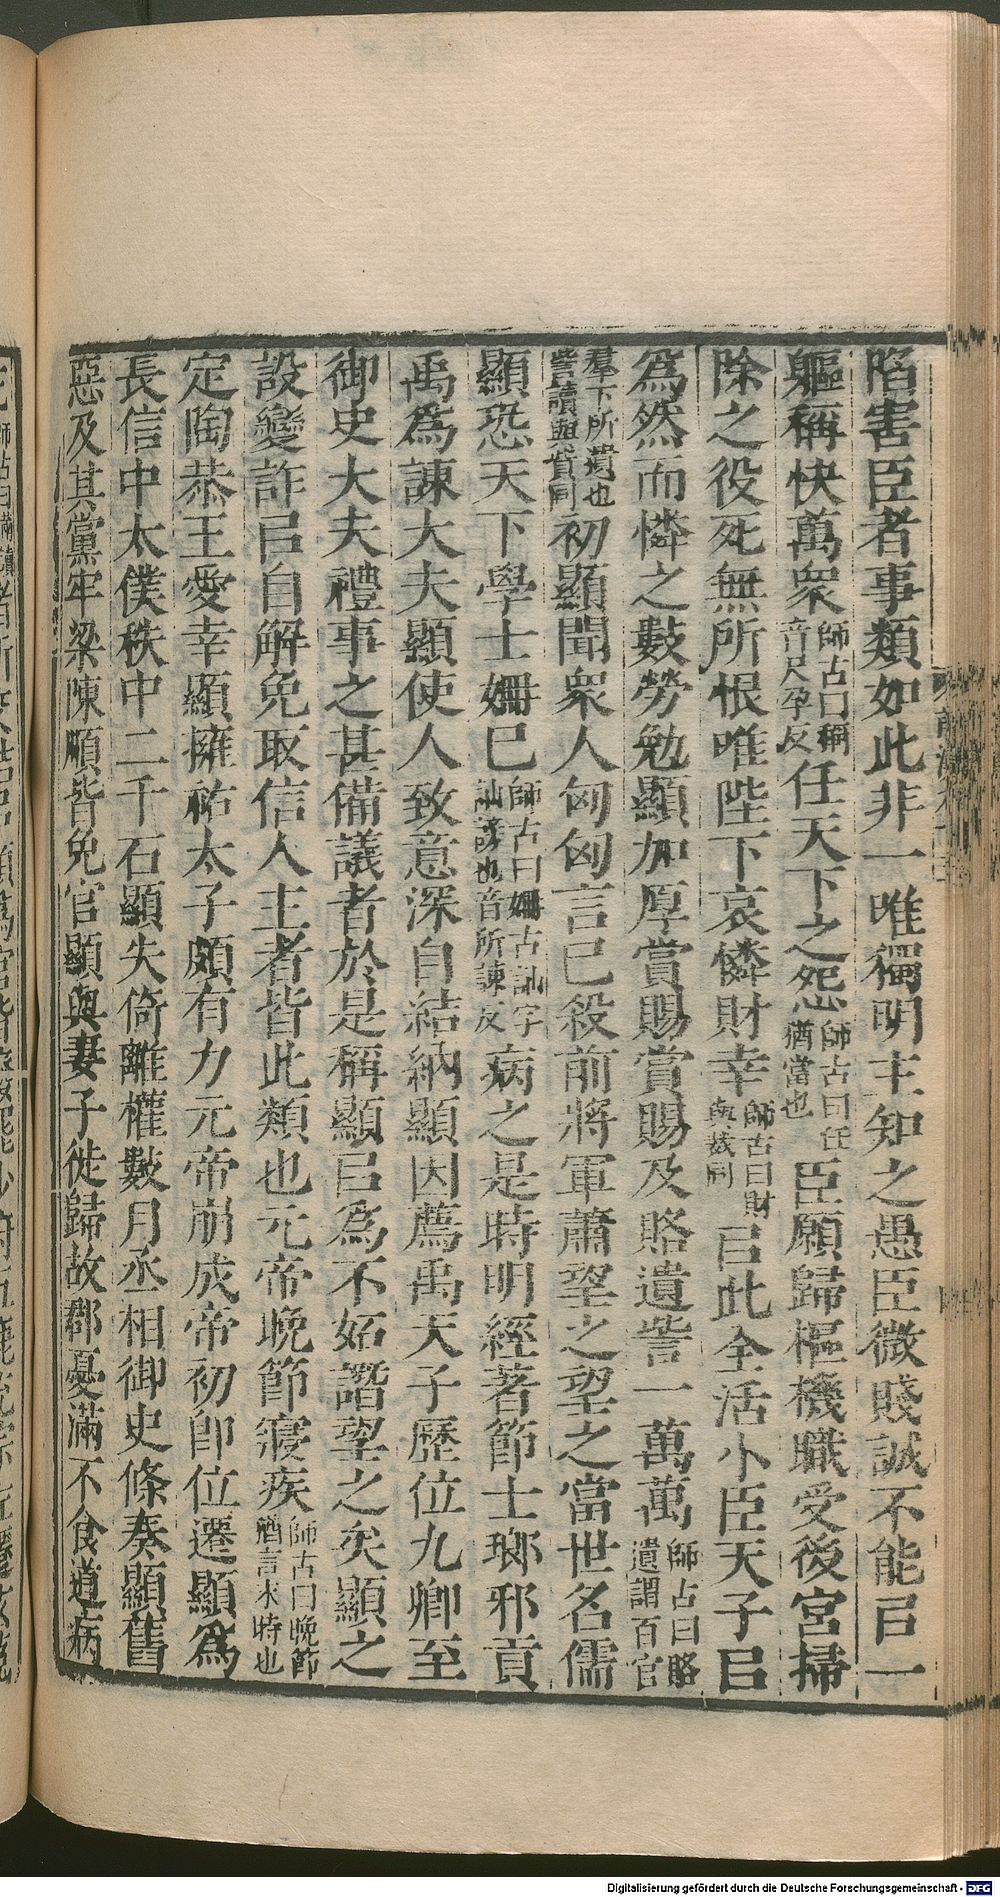 陷害臣者事類如此非一唯獨明主知之愚臣微賤誠不能㠯一
軀稱快萬衆師古曰稱音尺孕反任天下之怨師古曰任猶當也臣願歸樞機職受後宮掃
除之役死無所恨唯陛下哀憐財幸師古曰財與裁同㠯此全活小臣天子㠯
為然而憐之數勞勉顯加厚賞賜賞賜及賂遺訾一萬萬師古曰賂遺謂百官
羣下所遺也訾讀與貲同初顯聞衆人匈匈言已殺前將軍蕭望之望之當世名儒
顯恐天下學士姍已師古曰姍古訕字訕謗也音所諫反病之是時明經著節士瑯邪貢
禹為諫大夫顯使人致意深自結納顯因薦禹天子歷位九卿至
御史大夫禮事之甚備議者於是稱顯㠯為不妬譖望之矣顯之
設變詐㠯自解免取信人主者皆此類也元帝晚節寢疾師古曰晚節猶言末時也
定陶恭王愛幸顯擁祐太子頗有力元帝崩成帝初即位遷顯為
長信中太僕秩中二千石顯失倚離權數月丞相御史條奏顯舊
惡及其黨牢梁陳順皆免官顯與妻子徙歸故郡憂滿不食道病
Digitalisierung gefördert durch die Deutsche Forschungsgemeinschaft - DFG